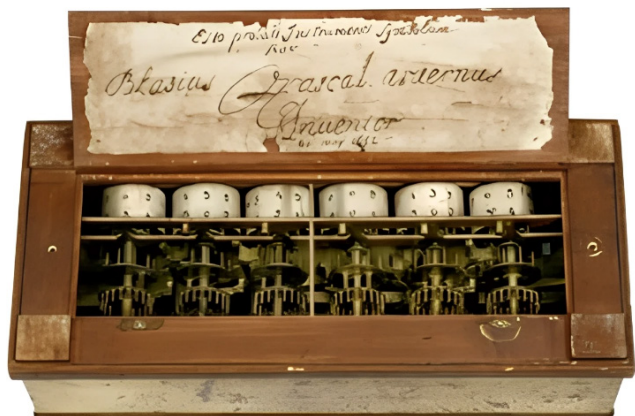 Esto probati Instrumenti Symbolum
hoc
Blasius Pascal. arvernus
Inventor
20 may 1652